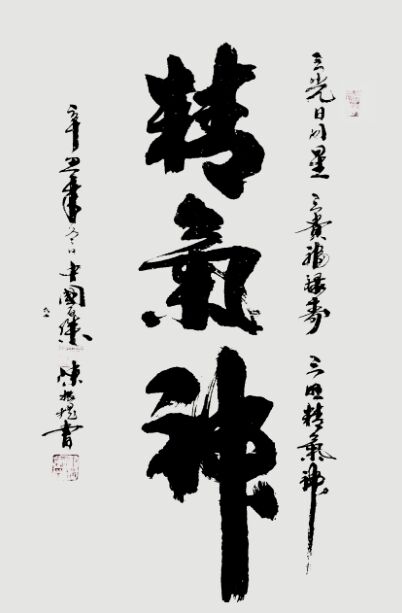 三光日月星 三貴福祿壽 三旺精氣神
精氣神
辛丑年冬日中國 陳書